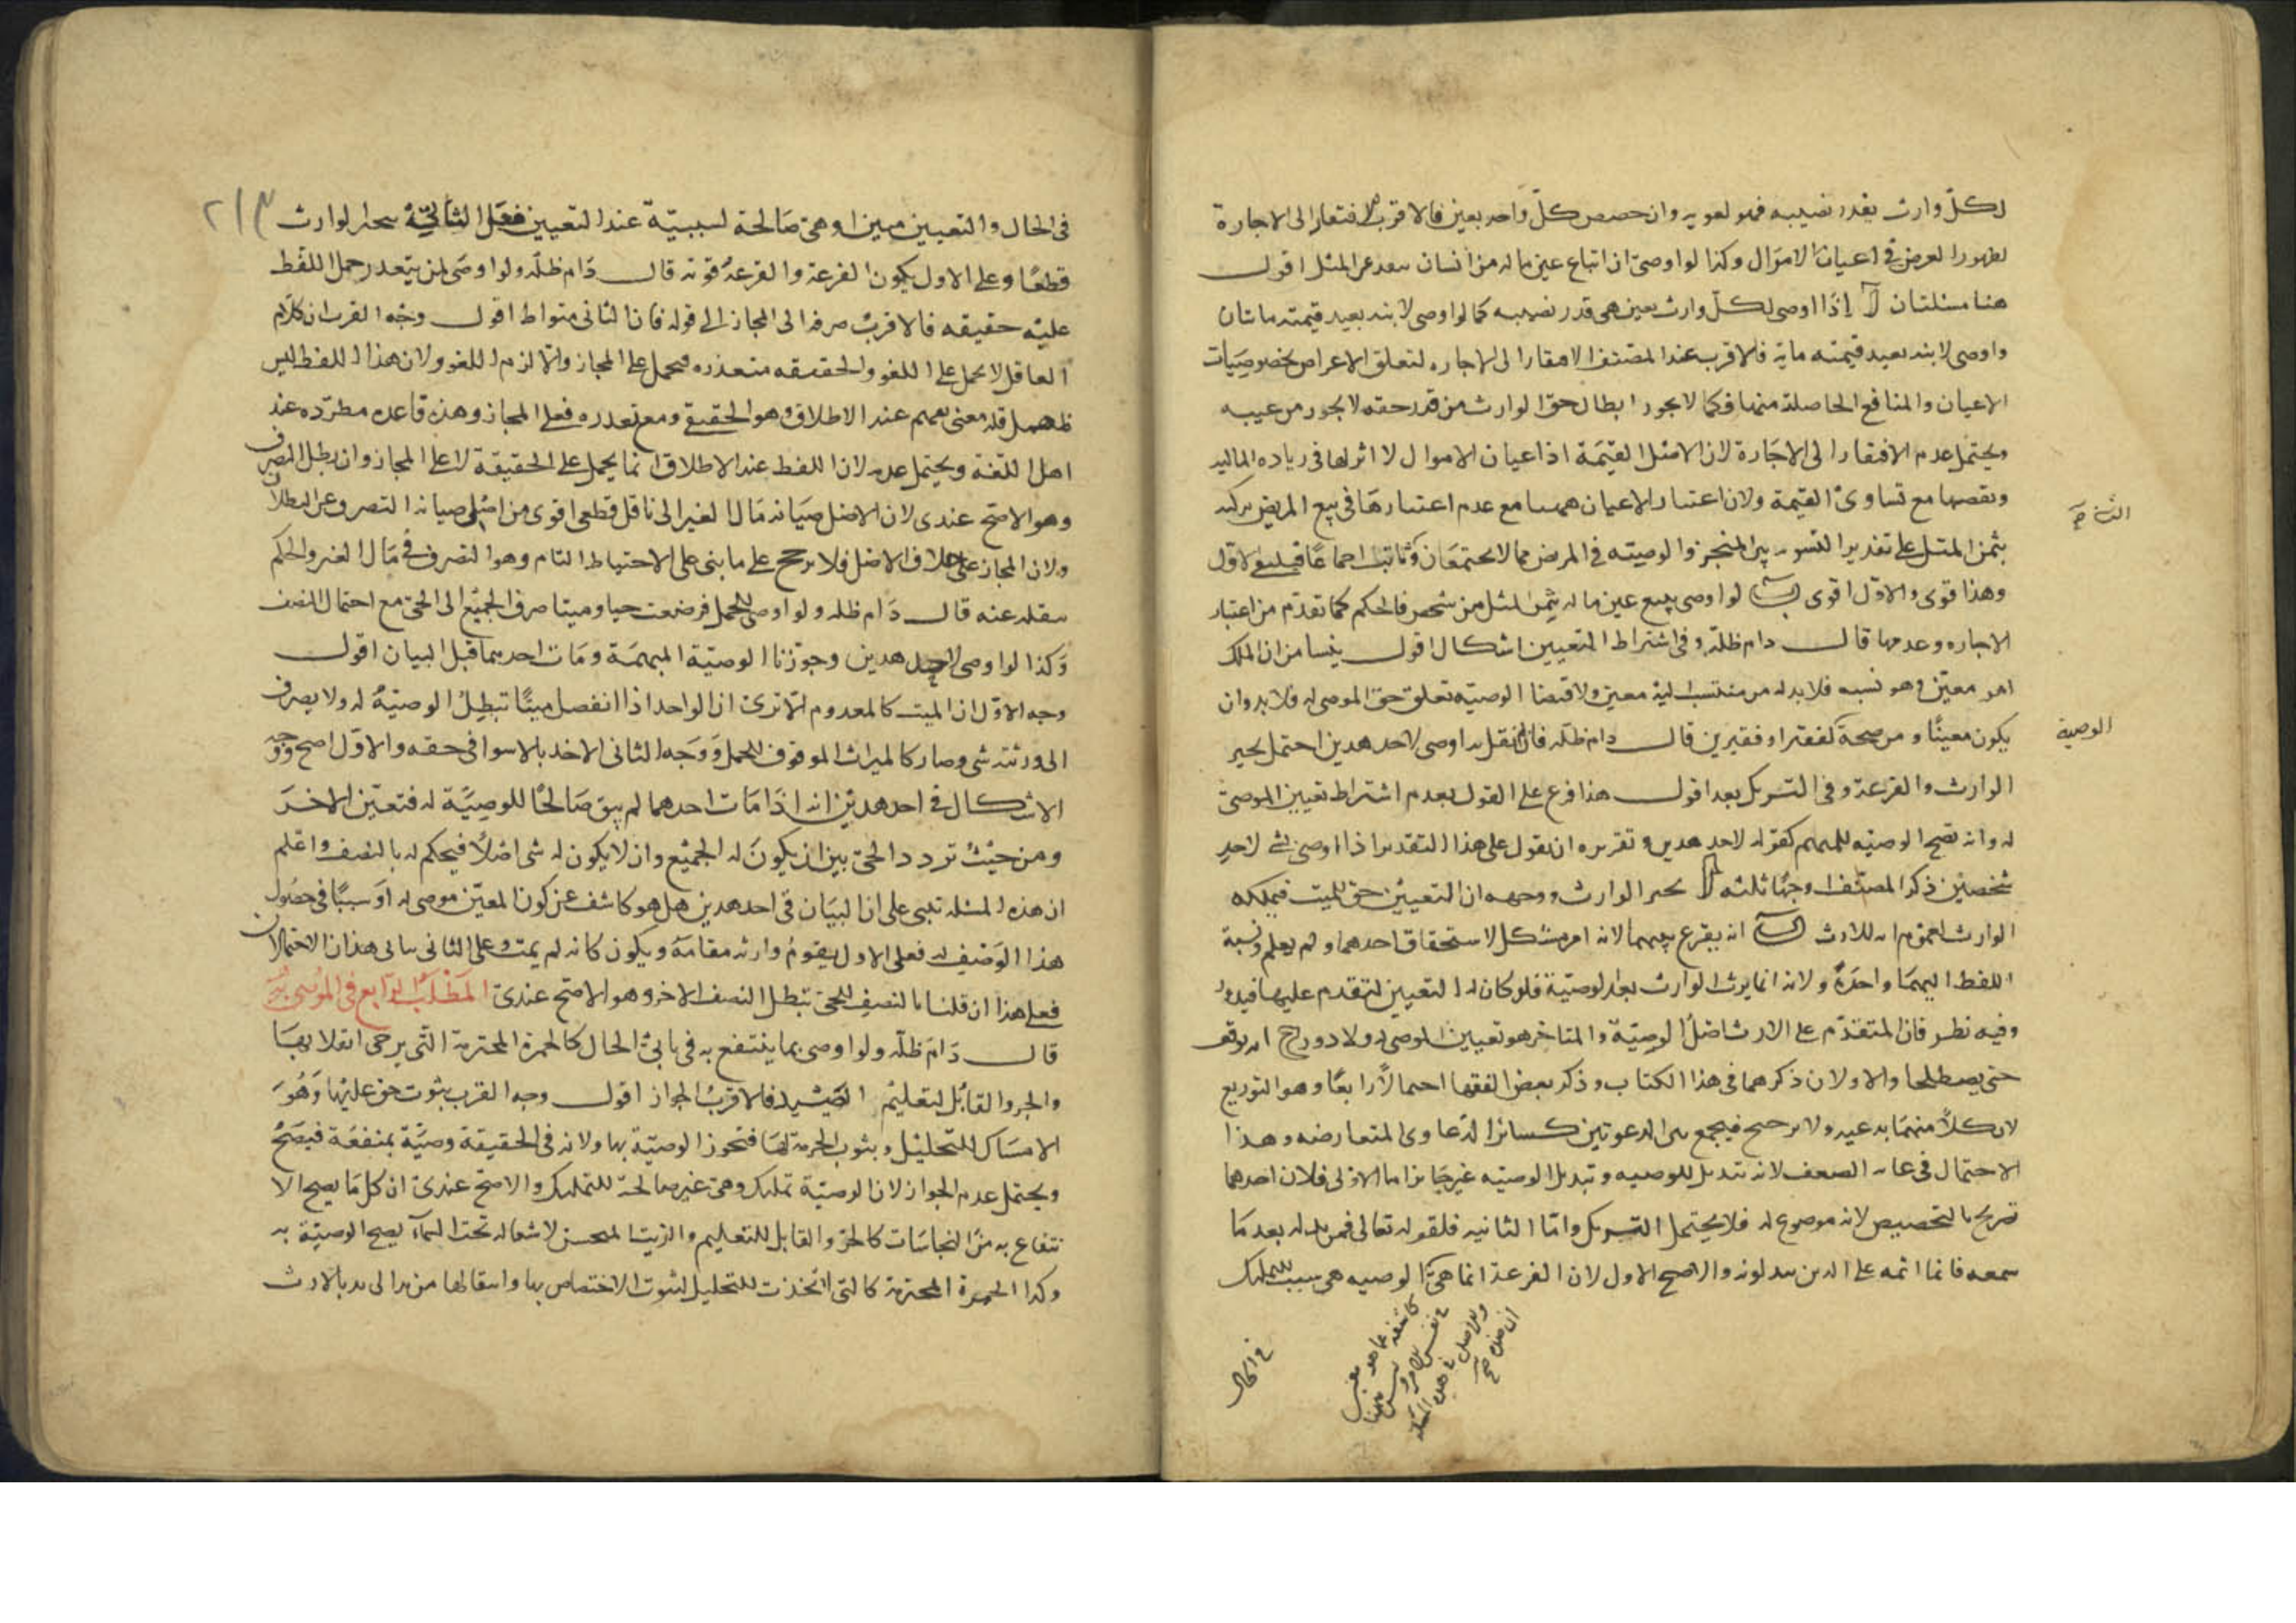 لكل وارث بقدر نصيبه فهو لغو به وان خصص كل واحد بعين فالاقرب الافتقار الى الاجازة
لظهور الغرض في اعيان الاموال وكذا لو اوصى ان تباع عين ماله من انسان بثمن المثل اقول
هنا مسئلتان آ اذا اوصى لكل وارث بعين هي قدر نصيبه كما لو اوصى لابنه بعبد قيمته مائتان
واوصى لابنه بعبد قيمته مايه فالاقرب عند المصنف الافتقار الى الاجازه لتعلق الاغراض بخصوصيات
الاعيان والمنافع الحاصلة منها فكما لا يجوز ابطال حق الوارث من قدر حقه لا يجوز من عينه
ويحتمل عدم الافتقار الى الاجازة لان الاصل القيمة اذ اعيان الاموال لا اثر لها في زياده الماليه
ونقصها مع تساوي القيمة ولان اعتبار الاعيان هنا مع عدم اعتبارها في بيع المريض تركته
بثمن المثل على تقدير التسوية بين المنجز والوصيته في المرض مما لا يجتمعان وثابت اجماعا فينتفي الاول
وهذا قوى والاول اقوى ب لو اوصى ببيع عين ماله بثمن المثل من شخص فالحكم كما تقدم من اعتبار
الاجازه وعدمها قال دام ظله وفي اشتراط التعيين اشكال اقول ينشا من ان الملك
امر معين وهو نسبه فلا بد له من منتسب اليه معين ولاقتضا الوصيه تعلق حق الموصى له فلا بد وان
يكون معينا ومن صحة كفقير او فقيرين قال دام ظله فان لم نقل به اوصى لاحد هذين احتمل تخيير
الوارث والقرعة وفي التشريك بعد اقول هذا فرع على القول بعدم اشتراط تعيين الموصى
له وانه تصح الوصيه للمبهم كقوله لاحد هدين وتقريره ان نقول على هذا التقدير اذا اوصى بشئ لاحد
شخصين ذكر المصنف وجها ثلثه آ تخير الوارث ووجهه ان التعيين حق للميت فيملكه
الوارث لعموم ايه الارث ب ان يقرع بينهما لانه امر مشكل لاستحقاق احدهما ولم يعلم ونسبة
اللفظ اليهما واحدة ولانه انما يرث الوارث بعد الوصية فلو كان له التعيين لتقدم عليها فيدور
وفيه نظر فان المتقدم على الارث اصل الوصية والمتاخر هو تعيين الموصى له ولا دور ج انه يوقف
حتى يصطلحا والاولان ذكرهما في هذا الكتاب وذكر بعض الفقها احتمالا رابعا وهو التوزيع
لان كلا منهما يدعيه ولا ترجيح فيجمع بين الدعوتين كسائر الدعاوى المتعارضه وهذا
الاحتمال في غايه الضعف لانه تبديل للوصيه وتبديل الوصيه غير جائز اما الاولى فلان احدهما
تصريح بالتخصيص لانه موضوع له فلا يحتمل التشريك واما الثانيه فلقوله تعالى فمن بدله بعد ما
سمعه فانما اثمه على الذين يبدلونه والاصح الاول لان القرعة انما هي الوصيه هي سبب للتمليك
كاشفه عما هو معين
في نفس الامر وليس
والاصل في هذه المسئله
ان هذه صح
في الحال
الوصية
في الحال والتعيين مبين او هي صالحة لسببية عند التعيين فعلى الثانية يتخير الوارث ٢١٣
قطعا وعلى الاول يكون القرعة والقرعة قوته قال دام ظله ولو اوصى لمن يتعذر حمل اللفظ
عليه حقيقه فالاقرب صرفه الى المجاز الى قوله فان الثاني متواط اقول وجه القرب ان كلام
العاقل لا يحمل على اللغو والحقيقه متعذره فيحمل على المجاز والا لزم اللغو ولان هذا اللفظ ليس
بمهمل فله معنى يفهم عند الاطلاق وهو الحقيقة ومع تعذره فعلى المجاز وهذه قاعده مطرده عند
اهل اللغة ويحتمل عدمه لان اللفظ عند الاطلاق انما يحمل على الحقيقة لا على المجاز وان بطل التصرف
وهو الاصح عندي لان الاصل صيانه مال الغير الى ناقل قطعي اقوى من اصل صيانه التصرف عن البطلان
ولان المجاز على خلاف الاصل فلا يرجح على ما بنى على الاحتياط التام وهو التصرف في مال الغير والحكم
بنقله عنه قال دام ظله ولو اوصى للحمل فوضعت حيا وميتا صرف الجميع الى الحي مع احتمال النصف
وكذا لو اوصى لاحد هدين وجوزنا الوصية المبهمة ومات احدهما قبل البيان اقول
وجه الاول ان الميت كالمعدوم الا ترى ان الواحد اذا انفصل ميتا تبطل الوصية له ولا يصرف
الى ورثته شى وصار كالميراث الموقوف للحمل ووجه الثاني الاخذ بالاسوا في حقه والاول اصح ووجه
الاشكال في احد هدين انه اذا مات احدهما لم يبق صالحا للوصية له فتعين الاخر
ومن حيث تردد الحي بين ان يكون له الجميع وان لا يكون له شى اصلا فيحكم له بالنصف واعلم
ان هذه المسئله تبنى على ان البيان في احد هدين هل هو كاشف عن كون المعين موصى له او سببا في حصول
هذا الوصف له فعلى الاول يقوم وارثه مقامه ويكون كانه لم يمت وعلى الثاني ياتى هذان الاحتمالان
فعلى هذا ان قلنا بالنصف للحي تبطل النصف الاخر وهو الاصح عندى المطلب الرابع في الموصى به
قال دام ظله ولو اوصى بما ينتفع به في ثاني الحال كالخمرة المحترمة التي يرجى انقلابها
والجرو القابل لتعليم الصيد فالاقرب الجواز اقول وجه القرب ثبوت حق عليها وهو
الامساك للتحليل وثبوت الحرمة لها فتجوز الوصية بها ولانه في الحقيقة وصية بمنفعة فيصح
ويحتمل عدم الجواز لان الوصية تمليك وهي غير صالحة للتمليك والاصح عندى ان كل ما يصح الا
نتفاع به من النجاسات كالجرو القابل للتعليم والزيت النجس لاشعاله تحت السماء يصح الوصية به
وكذا الخمرة المحترمة كالتي اتخذت للتحليل لثبوت الاختصاص بها وانتقالها من يد الى يد بالارث